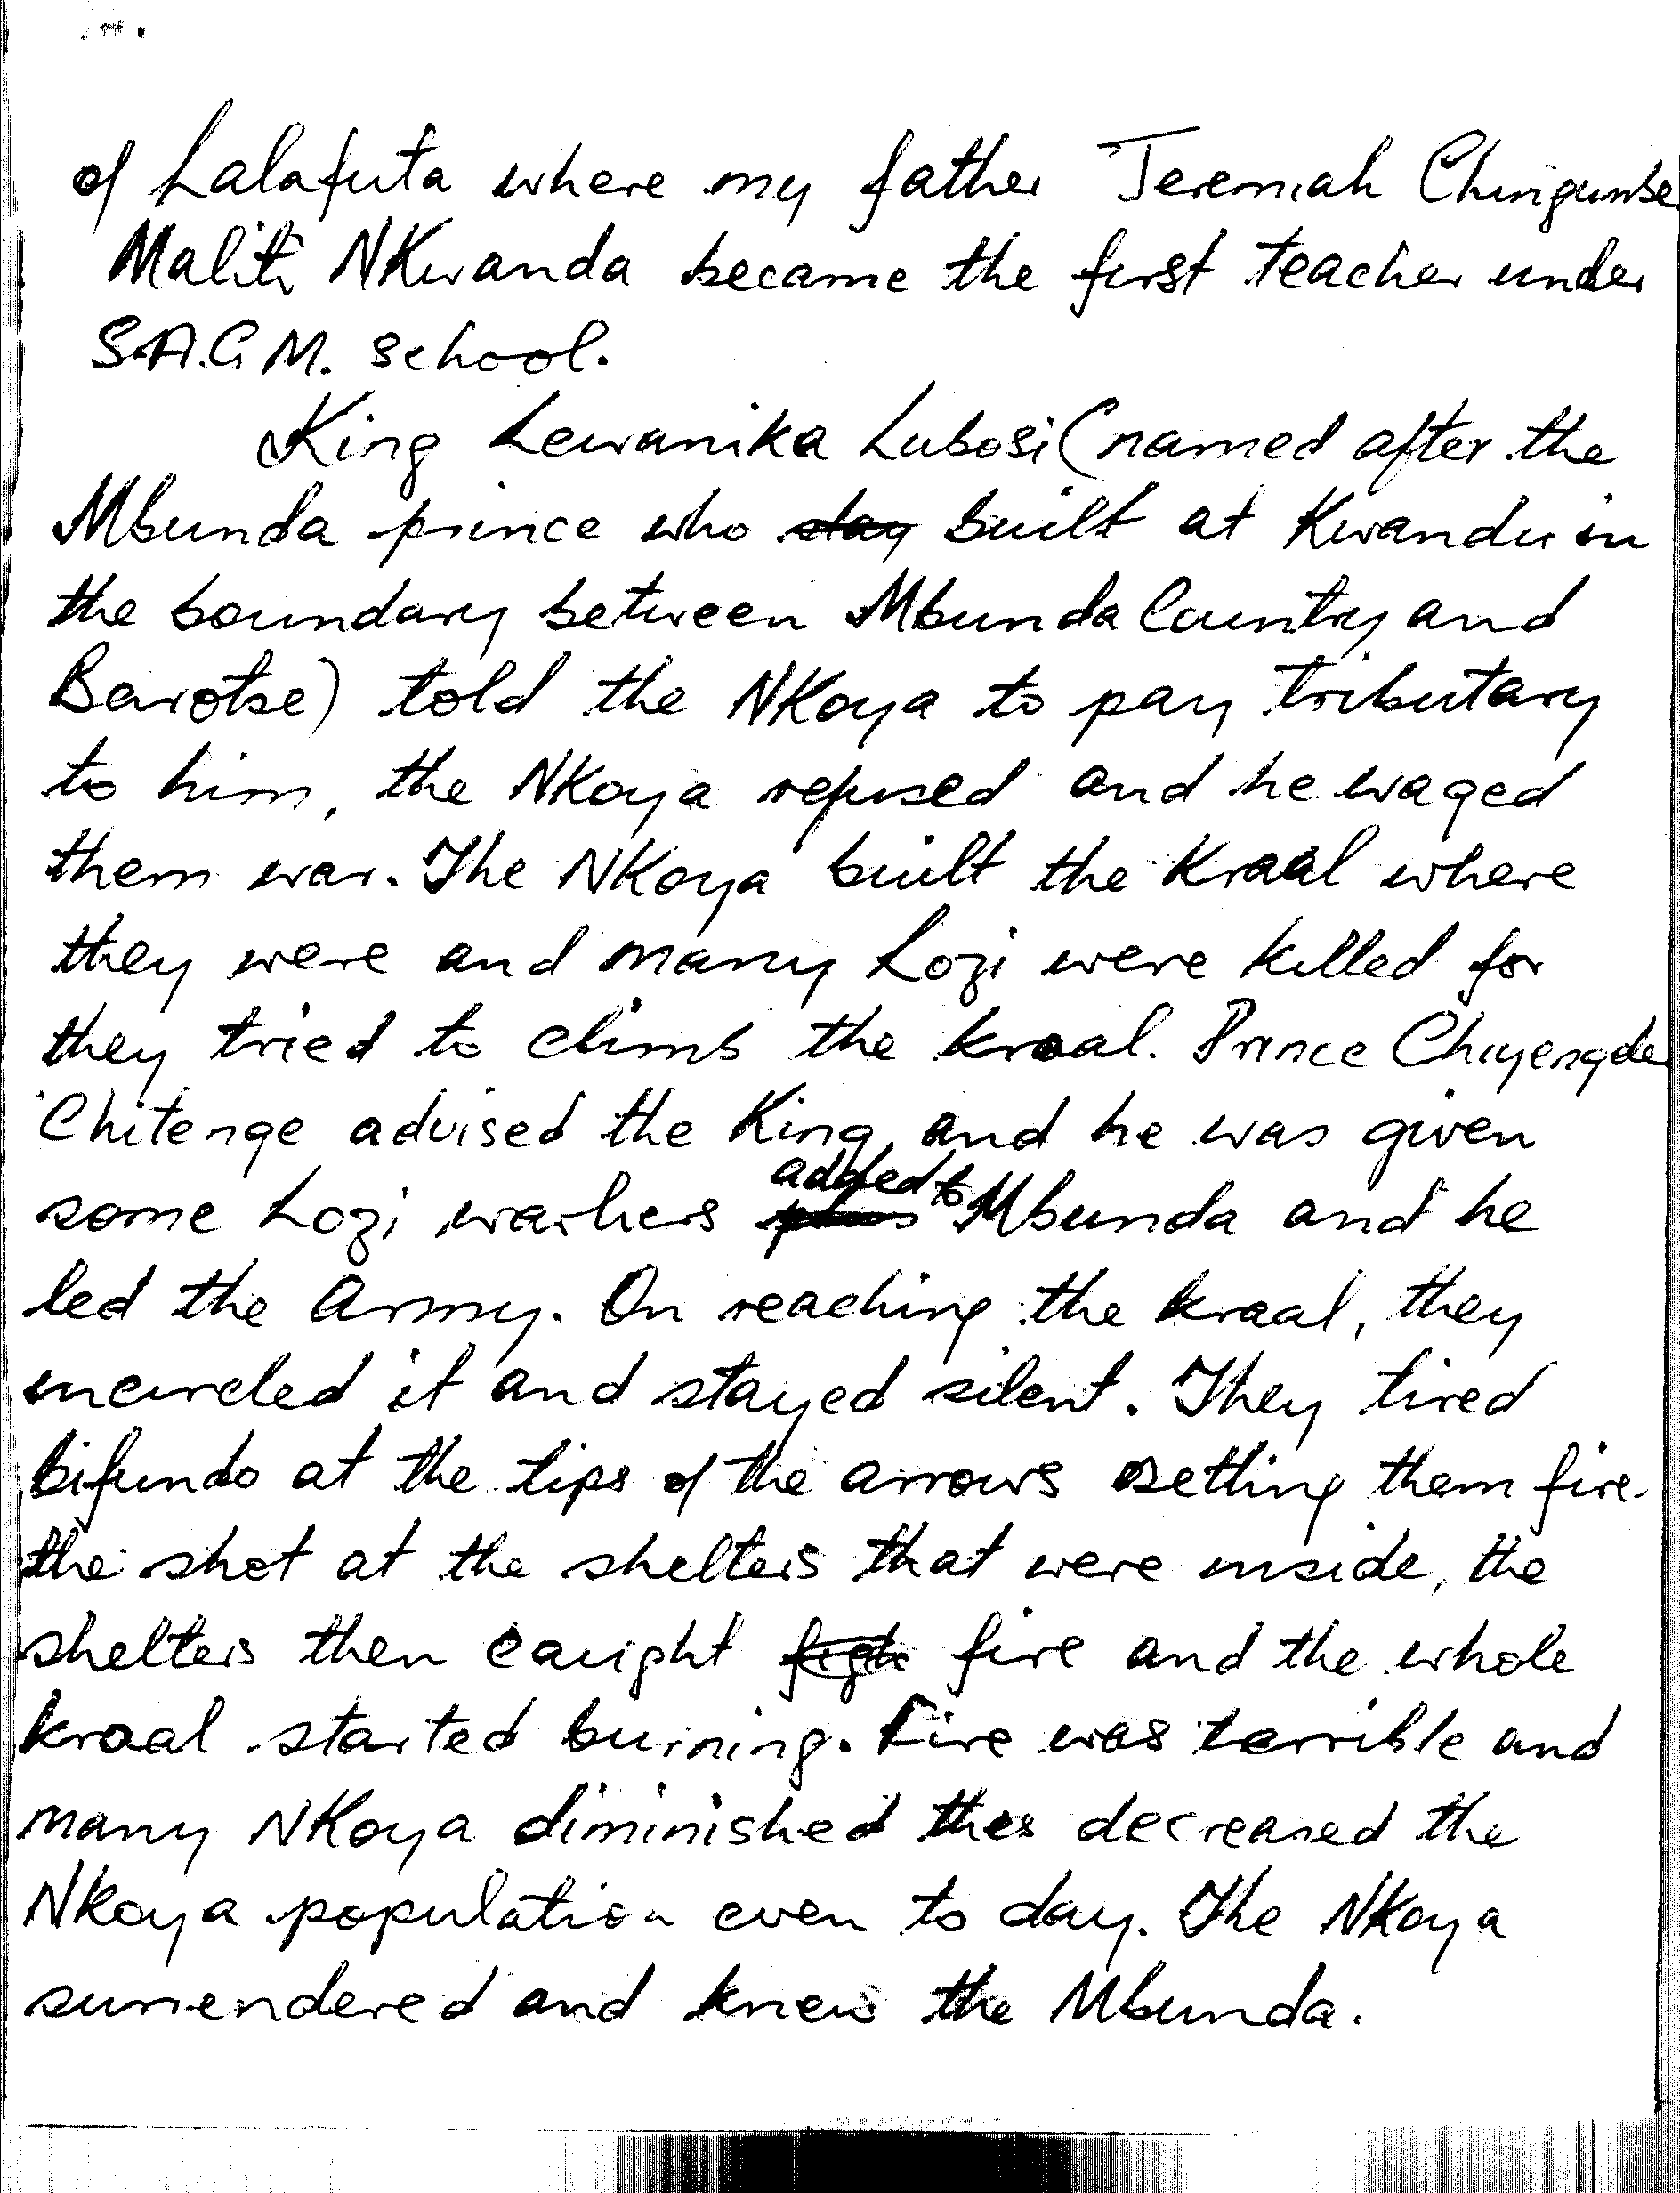 of Lalafuta where my father Jeremiah Chingumbe
Maliti NKwanda became the first teacher under
S.A.G.M. school.
King Lewanika Lubosi (named after the
Mbunda prince who built at Kwandu in
the boundary between Mbunda Country and
Barotse) told the NKoya to pay tributary
to him, the NKoya refused and he waged
them war. The NKoya built the Kraal where
they were and many Lozi were killed for
they tried to climb the kraal. Prince Chiyengele
Chitenge advised the King, and he was given
some Lozi warhers added to Mbunda and he
led the Army. On reaching the kraal, they
encircled it and stayed silent. They tired
bifundo at the tips of the arrows setting them fire.
the shot at the shelters that were inside, the
shelters then caught fire and the whole
kraal started burning. Fire was terrible and
many NKoya diminished thes decreased the
NKoya population even to day. The NKoya
surrendered and knew the Mbunda.